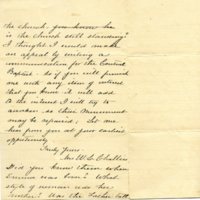 the church, you know he
is the church still standing?
I thought I would make
an appeal by writing a
communication for the Central
Baptist. So if you will furnish
me with any item of interest
that you know it will add
to the interest I will try to
awaken so their Monument
may be repaired; Let me
hear from you at your earliest
opportunity
Truly Yours
Mrs W. L.
Did you know them when
Emma was born? What
style of woman was her
Mother? Was the Father tall